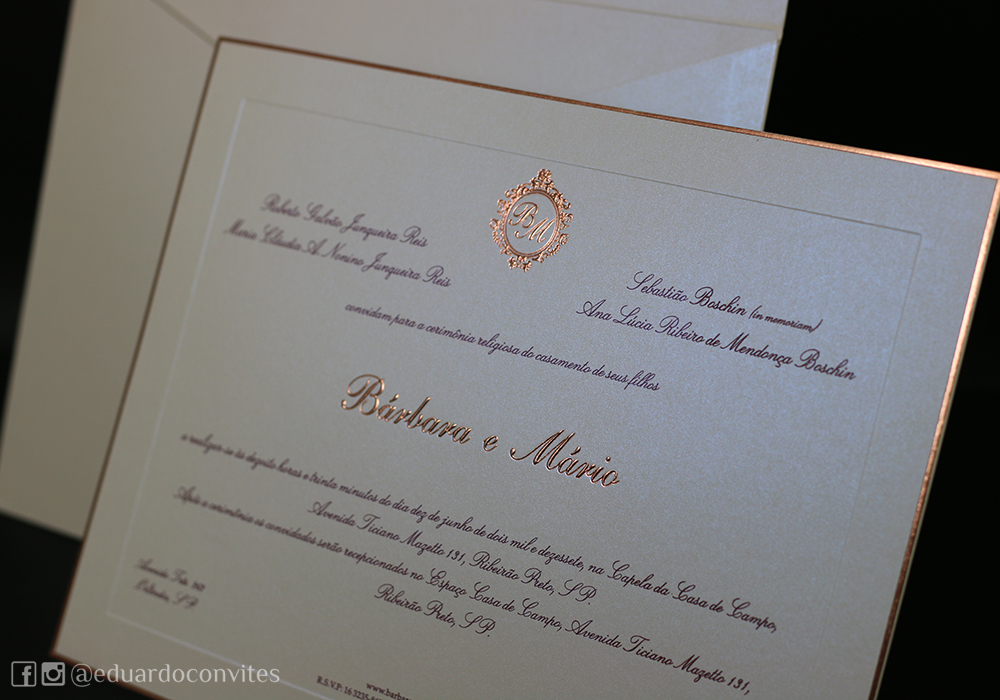 BM
Roberto Galvão Junqueira Reis
Maria Cláudia A. Nonino Junqueira Reis
Sebastião Boschin (in memoriam)
Ana Lúcia Ribeiro de Mendonça Boschin
convidam para a cerimônia religiosa do casamento de seus filhos
Bárbara e Mário
a realizar-se às dezoito horas e trinta minutos do dia dez de junho de dois mil e dezessete, na Capela da Casa de Campo,
Avenida Ticiano Mazetto 131, Ribeirão Preto, SP.
Após a cerimônia os convidados serão recepcionados no Espaço Casa de Campo, Avenida Ticiano Mazetto 131,
Ribeirão Preto, SP.
Avenida
SP
www.barbar
R.S.V.P: 16 3235-8
@eduardoconvites